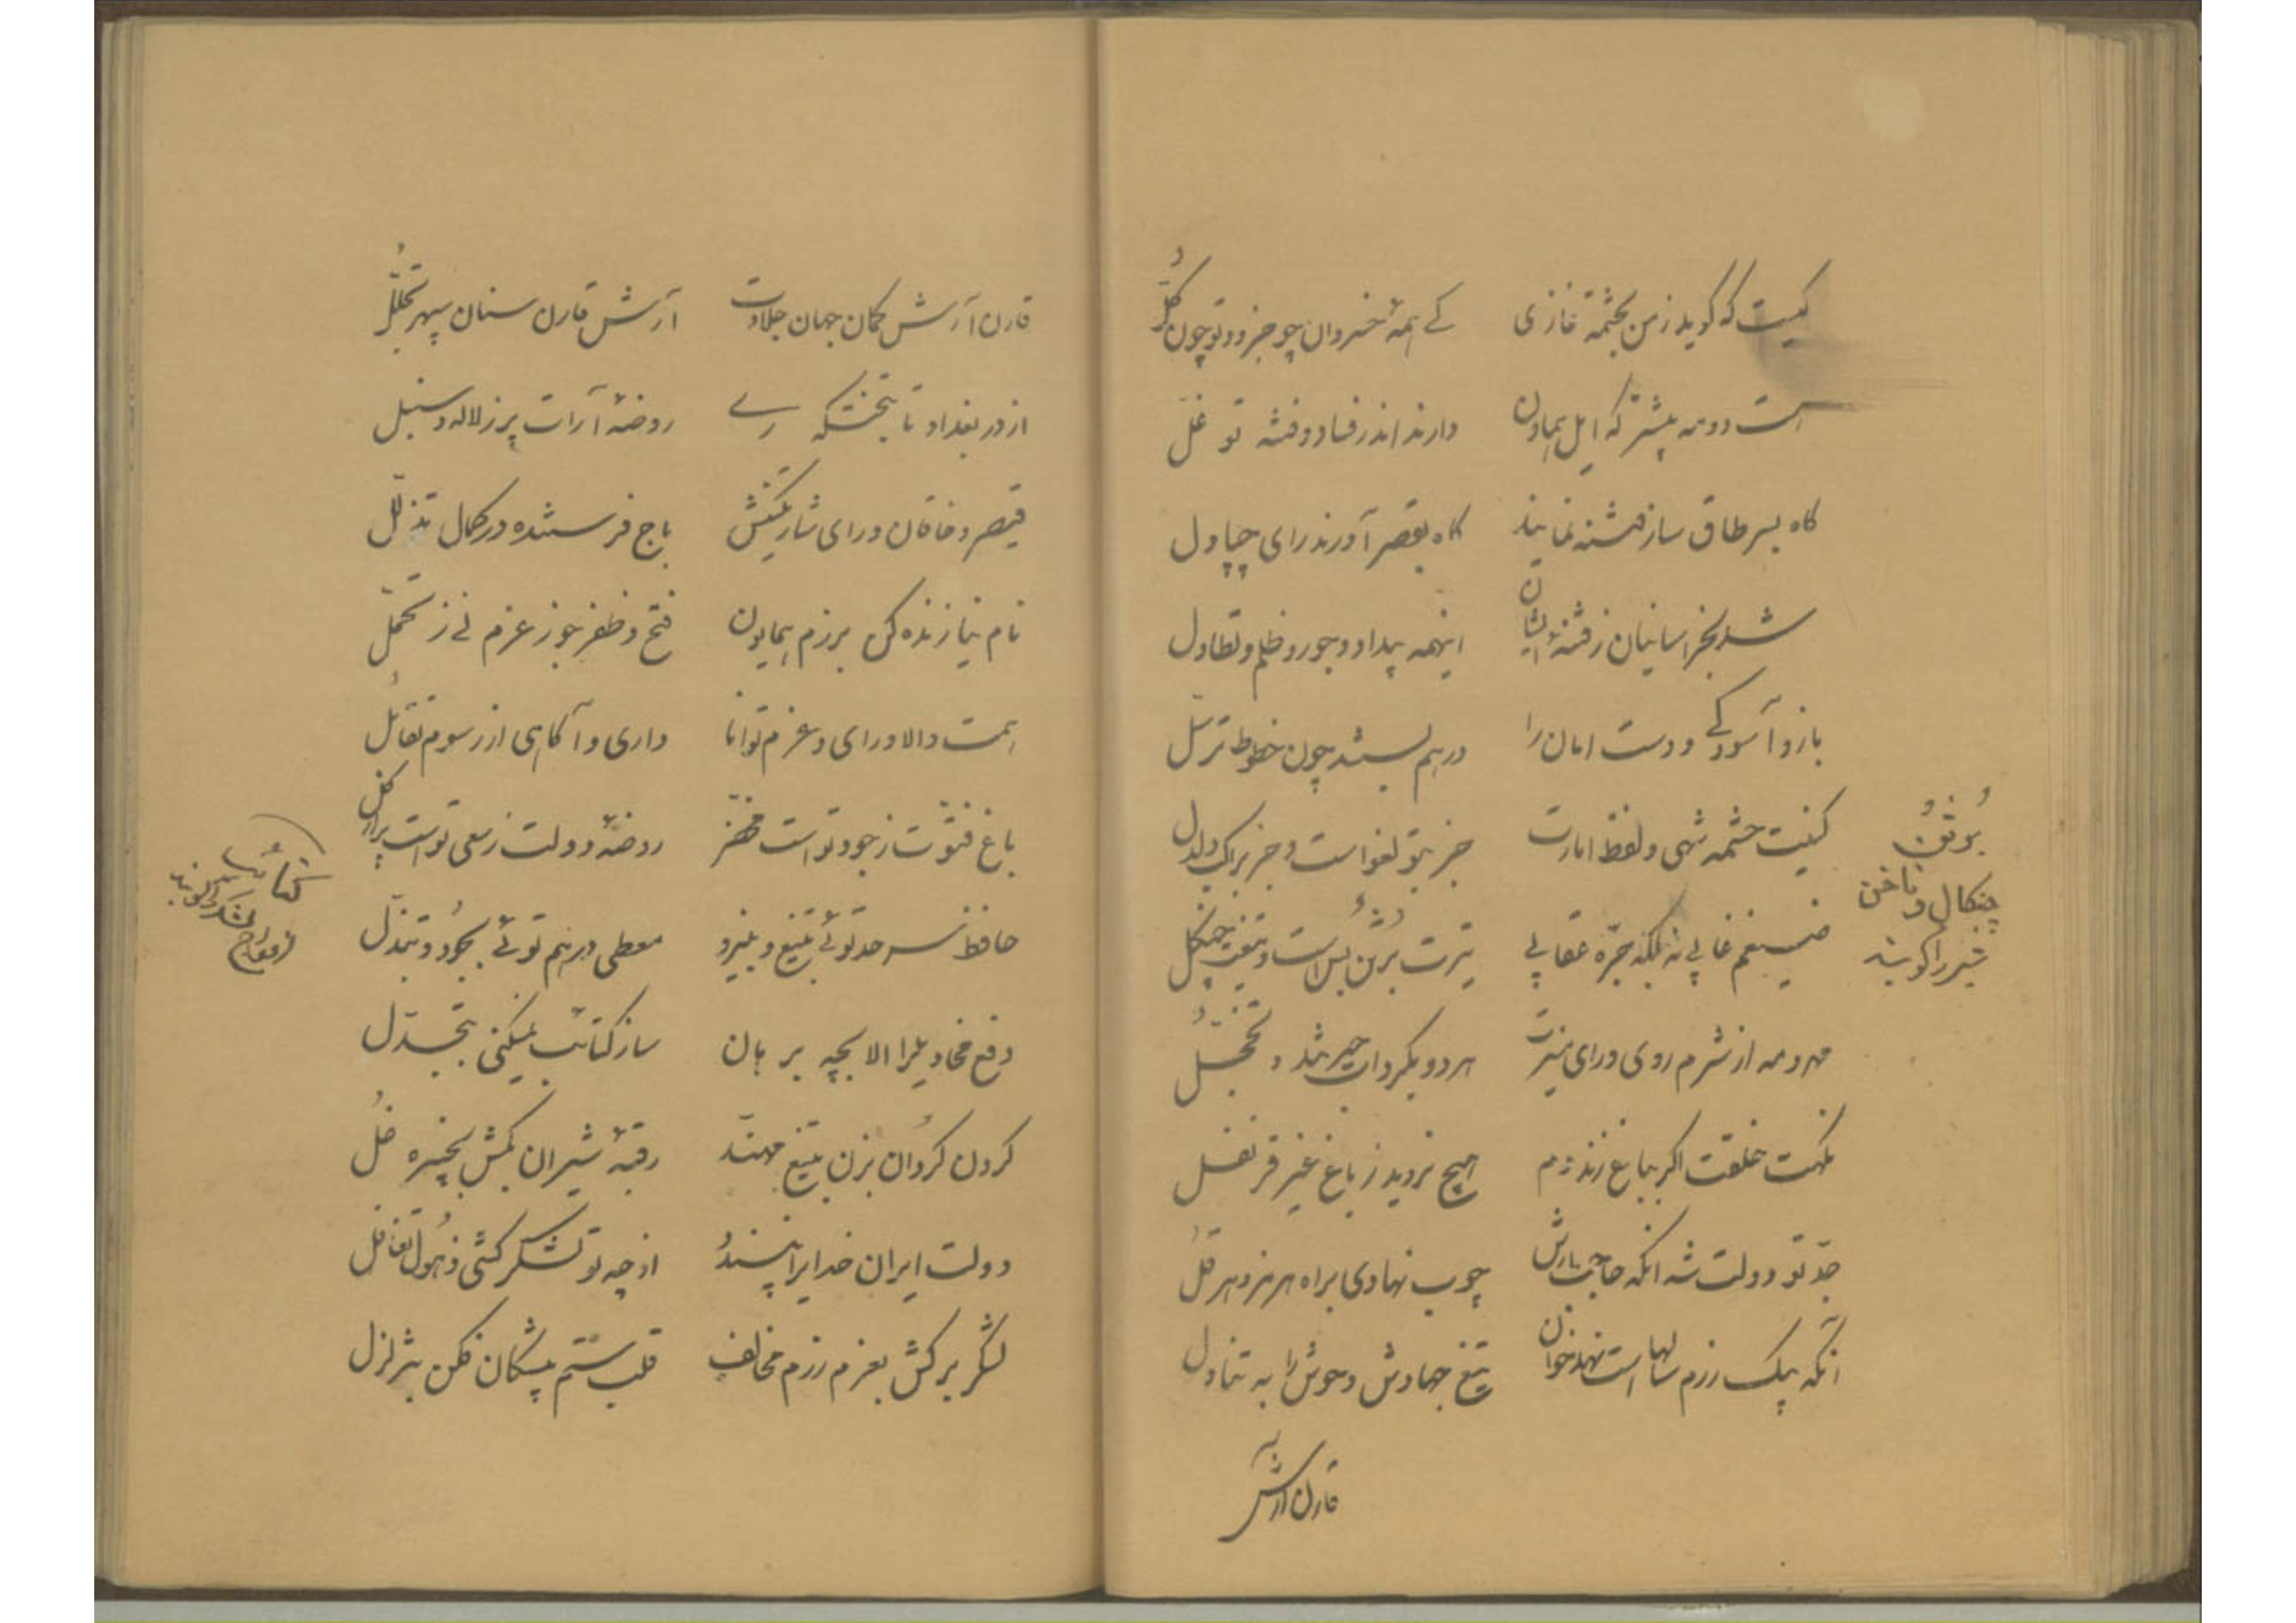 کیست که گوید ز من بحشمة غازی    کے همهٔ خسروان چو جزو و تو چون کل
است دو مه بیشتر که ایل بماون    دارند اندر فساد و فتنه تو غل
گاه بسر طاق ساز فتنه نمایند    گاه بقصر آورند رای چپاول
شد بخراسانیان ز فتنهٔ ایشان    اینهمه بیداد و جور و ظلم و تطاول
بازو آسودگے و دست امان را    در هم بستند چون خطوط ترسّل
کنیت حشمة شهی و لفظ امارت    جز بتو لغو است و جز براک و لدل
بُرثُن
چنکال و ناخن
شیر را کویند
ضیغم غابے نه بلکه جرّه عقابے    تیرت بُرثُن بس است و تیغت چنگل
مهر و مه از شرم روی و رای منیرت    هر دو بکرداب حیرتند و تخجّل
نکهت خلقت اکر بباغ زند دم    هیچ نروید ز باغ غیر قرنفل
جدّ تو دولت شه انکه حاجب بارش    چوب نهادی براه هرمز و هرقل
آنکه بیک رزم سالها است نهد خوان    تیغ جهادش وحوش را به تناول
قارن آرش
قارن آرش کمان جهان جلادت    آرش قارن سنان سپهر تجلّل
از در بغداد تا بتختکه رے    روضهٔ آرات پر ز لاله و سنبل
قیصر و خاقان و رای شارپیکنش    باج فرستنده در کمال تذلّل
نام نیا زنده کن برزم همایون    فتح و ظفر جو ز عزم نے ز تحمّل
همت والا و رای و عزم توانا    داری و آکاهی از رسوم تقاتل
باغ فتوّت ز جود تو است مخضّر    روضهٔ دولت ز سعی تو است پر از کل
حافظ سرحد توئے بتیغ و بنیرو    معطی درهم توئے بجود و تبذّل
کتائب
لشکر را کویند
دفع مخاذیل را الا بچه برهان    ساز کتائب نمیکنی بتجدّل
کردن کردان بزن بتیغ مهنّد    رقبهٔ شیران بکش بخیره غل
دولت ایران خدایرا پسند    از چه تو لشکر کشی ذهول تغافل
لشکر برکش بعزم رزم مخالف    قلب ستم پیشکان فکن بتزلزل